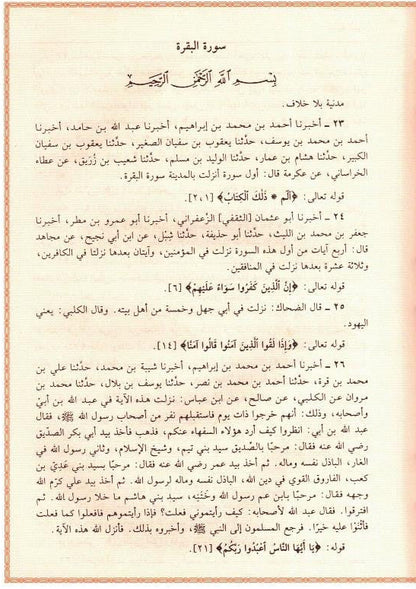 سورة البقرة
بِسْمِ اللَّهِ الرَّحْمَنِ الرَّحِيمِ
مدنية بلا خلاف.
٢٣ ـ أخبرنا أحمد بن محمد بن إبراهيم، أخبرنا عبد الله بن حامد، أخبرنا
أحمد بن محمد بن يوسف، حدَّثنا يعقوب بن سفيان الصغير، حدَّثنا يعقوب بن سفيان
الكبير، حدَّثنا هشام بن عمار، حدَّثنا الوليد بن مسلم، حدَّثنا شعيب بن زُرَيق، عن عطاء
الخراساني، عن عكرمة قال: أول سورة أنزلت بالمدينة سورة البقرة.
قوله تعالى: ﴿الٓمٓ * ذَلِكَ الْكِتَابُ﴾ [٢،١].
٢٤ ـ أخبرنا أبو عثمان [الثقفي] الزَّعفراني، أخبرنا أبو عمرو بن مطر، أخبرنا
جعفر بن محمد بن الليث، حدَّثنا أبو حذيفة، حدَّثنا شِبْل، عن ابن أبي نجيح، عن مجاهد
قال: أربع آيات من أول هذه السورة نزلت في المؤمنين، وآيتان بعدها نزلتا في الكافرين،
وثلاثة عشرة بعدها نزلت في المنافقين.
قوله تعالى: ﴿إِنَّ الَّذِينَ كَفَرُوا سَوَاءٌ عَلَيْهِمْ﴾ [٦].
٢٥ ـ قال الضحاك: نزلت في أبي جهل وخمسة من أهل بيته. وقال الكلبي: يعني
اليهود.
قوله تعالى: ﴿وَإِذَا لَقُوا الَّذِينَ آمَنُوا قَالُوا آمَنَّا﴾ [١٤].
٢٦ ـ أخبرنا أحمد بن محمد بن إبراهيم، أخبرنا شيبة بن محمد، حدَّثنا علي بن
محمد بن قرة، حدَّثنا أحمد بن محمد بن نصر، حدَّثنا يوسف بن بلال، حدَّثنا محمد بن
مروان عن الكلبي، عن صالح، عن ابن عباس: نزلت هذه الآية في عبد الله بن أبيّ
وأصحابه، وذلك: أنهم خرجوا ذات يوم فاستقبلهم نفر من أصحاب رسول الله ﷺ، فقال
عبد الله بن أبي: انظروا كيف أرد هؤلاء السفهاء عنكم، فذهب فأخذ بيد أبي بكر الصدّيق
رضي الله عنه فقال: مرحبًا بالصِّديق سيد بني تيم، وشيخ الإسلام، وثاني رسول الله في
الغار، الباذل نفسه وماله. ثم أخذ بيد عمر رضي الله عنه فقال: مرحبًا بسيد بني عَدِيّ بن
كعب، الفاروق القوي في دين الله، الباذل نفسه وماله لرسول الله. ثم أخذ بيد علي كرّم الله
وجهه فقال: مرحبًا بابن عم رسول الله وخَتَنِه، سيد بني هاشم ما خلا رسول الله. ثم
افترقوا. فقال عبد الله لأصحابه: كيف رأيتموني فعلت؟ فإذا رأيتموهم فافعلوا كما فعلت
فأثْنَوْا عليه خيرًا. فرجع المسلمون إلى النبي ﷺ، وأخبروه بذلك. فأنزل الله هذه الآية.
قوله: ﴿يَا أَيُّهَا النَّاسُ اعْبُدُوا رَبَّكُمُ﴾ [٢١].